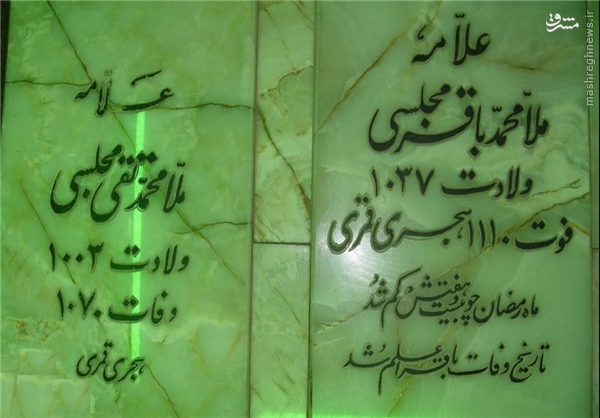 علّامه
ملا محمد باقر مجلسی
ولادت ۱۰۳۷
فوت ۱۱۱۰ هجری قمری
ماه رمضان چو بیست و هفتش کم شد
تاریخ وفات باقر اعلم شد
علّامه
ملّا محمّد تقی مجلسی
ولادت ۱۰۰۳
وفات ۱۰۷۰
هجری قمری
مشرق
mashreghnews.ir